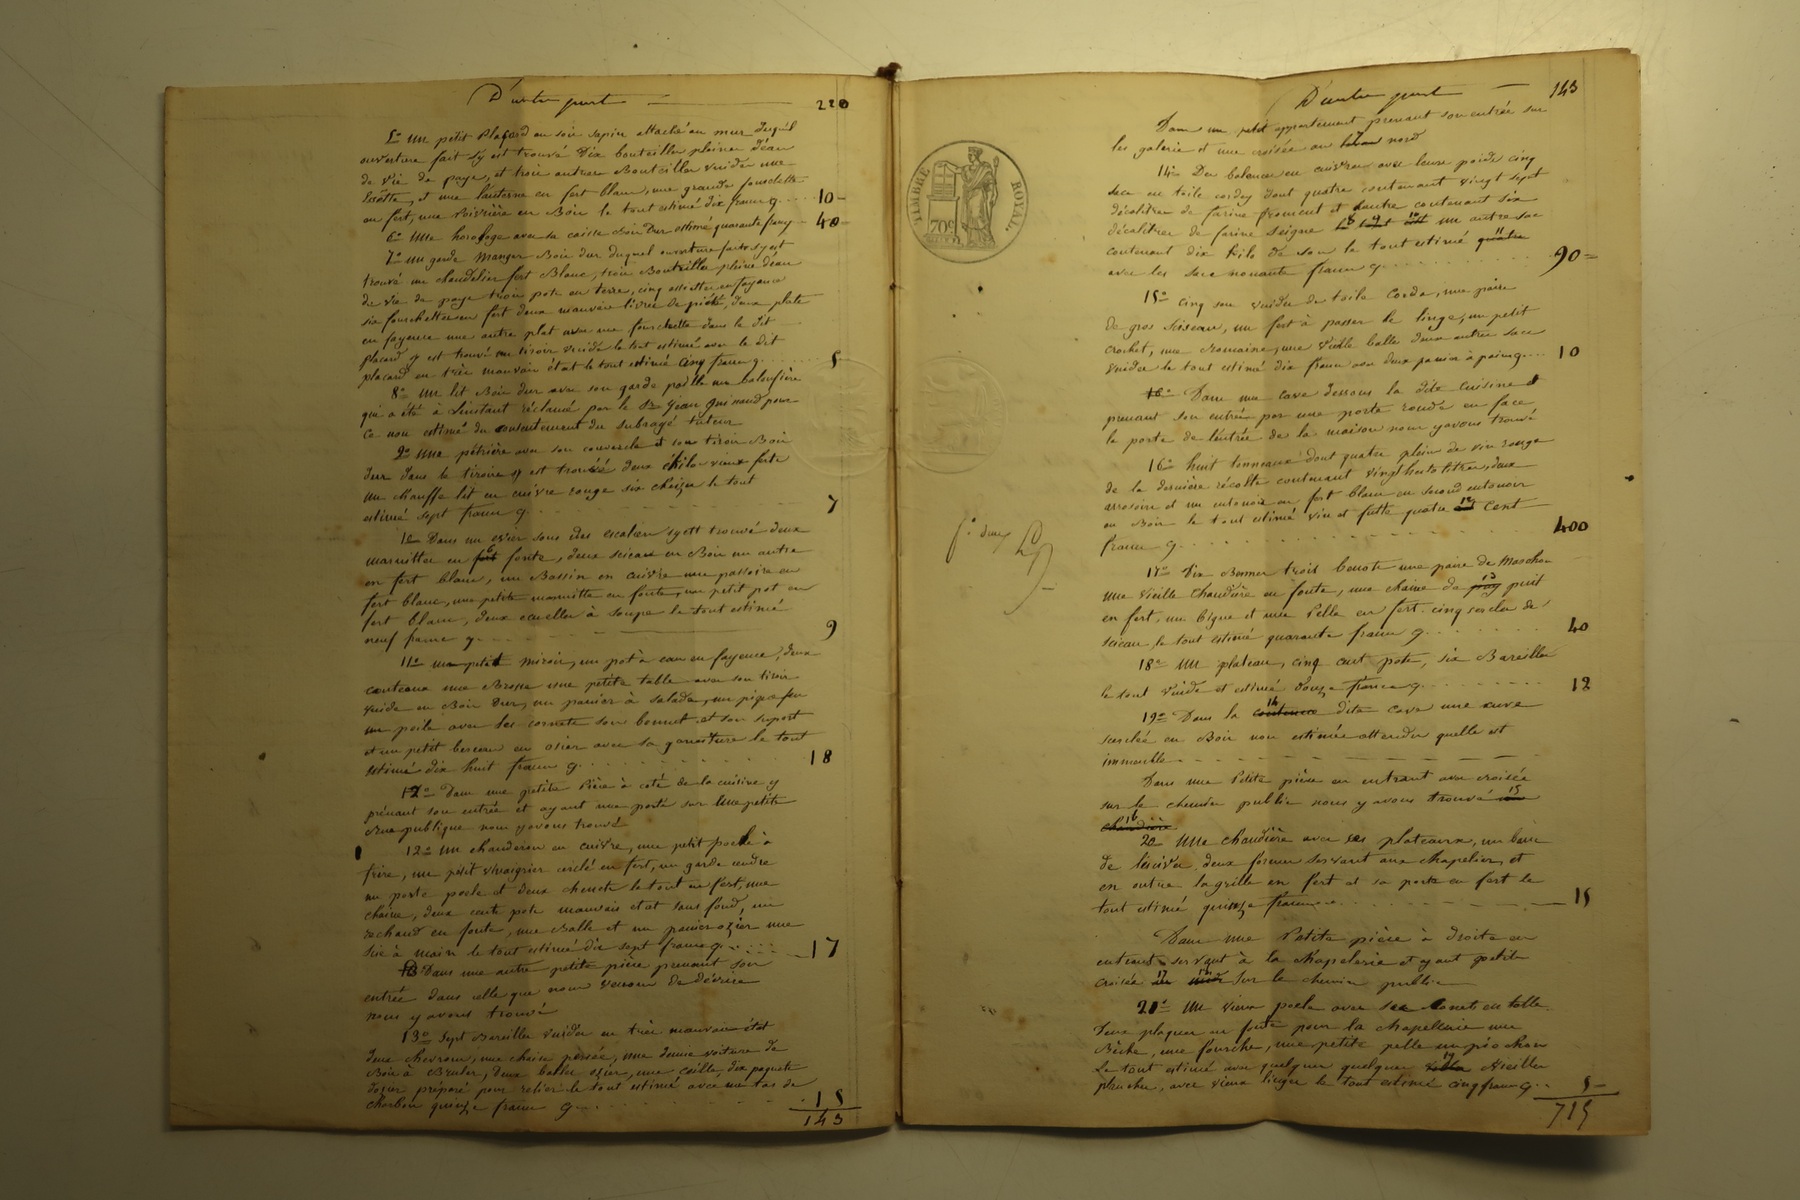 D'autre part 220
5º un petit Placard en soie sapin attaché au mur duquel
ouverture fait s'y est trouvé Dix bouteilles pleines d'eau
de vie de pays, et trois autres Bouteilles vuides une
et une lanterne en fert blanc, une grande fourchette
en fert, une en Bois le tout estimé dix francs 10=
6º une horloge avec sa caisse Bois Dur estimé quarante francs 40=
7º un garde manger Bois dur duquel ouverture faite s'y est
trouvé un chandelier fert Blanc, trois Bouteilles pleine d'eau
de vie de pays trois pots en terre, cinq assiettes en fayence
six fourchettes en fert deux mauvais livres de piété, deux plats
en fayence une autre plat avec une fourchette dans le dit
placard y est trouvé un tiroir vuide le tout estimé avec le dit
placard en très mauvais état le tout estimé cinq francs 5
8º un lit Bois dur avec son garde paille un baloufière
qui a été à l'instant réclamé par le Sr Jean Guinaud pour
ce non estimé du consentement du subrogé tuteur
9º une pétrière avec son couvercle et son tiroir Bois
dur dans le tiroir y est trouvé deux kilos vieux ferts
un chauffe lit en cuivre rouge six chaizes le tout
estimé sept francs 7
10 Dans un evier sous des escaliers sy est trouvé deux
marmittes en fert 6 fonte, deux seicaux en Bois un autre
en fert blanc, un Bassin en cuivre une passoire en
fert blanc, une petite marmitte en fonte, un petit pot en
fert blanc, deux ecuelles à soupe le tout estimé
neuf francs 9
11º un petit miroir, un pot à eau en fayence, deux
couteaux une Brosse une petite table avec son tiroir
vuide en Bois Dur, un panier à salade, un pique feu
un poële avec ses cornets son bonnet et son suport
et un petit berceau en osier avec sa garniture le tout
estimé dix huit francs 18
12º Dans une petite Pièce à coté de la cuisine y
prenant son entrée et ayant une porte sur une petite
rue publique nous y avons trouvé
12º Un chauderon en cuivre, une petit poële à
frire, un petit vinaigrier cerclé en fert, un garde cendre
un porte poële et deux chenets le tout en fert, une
chaine, deux cents pots mauvais etat sans fond, un
rechaud en fonte, une Balle et un panier ozier une
sie à main le tout estimé dix sept francs 17
13 Dans une autre petite pièce prenant son
entrée dans celle que nous venons de décrire
nous y avons trouvé
13º Sept Bareilles vuides en très mauvais état
deux chevrons, une chaise percée, une demie voiture de
Bois à Bruler, deux balles ozier, une seille, dix paquets
d'ozier préparé pour relier le tout estimé avec un tas de
charbon quinze francs 15
143
TIMBRE ROYAL
70c
fo deux
D'autre part 143
Dans un petit appartement prenant son entrée sur
les galerie et une croisée au 7 nord
14º Des balances en cuivre avec leurs poids cinq
sacs en toile cordes dont quatre contenant vingt sept
décalitres de farine froment et l'autre contenant six
décalitres de farine seigne 8 9 10 un autre sac
contenant dix kilo de son le tout estimé quatre 11
avec les sacs nonante francs 90=
15º cinq sac vuides de toile corde, une paire
de gros siseaux, un fert à passer le linge, un petit
crochet, une romaine, une vieille balle deux autres sacs
vuides le tout estimé dix francs avec deux panier à pain 10
16º Dans une cave dessous la dite cuisine et
prenant son entrée par une porte ronde en face
la porte de l'entrée de la maison nous y avons trouvé
16º huit tonneaux dont quatre plein de vin rouge
de la dernière récolte contenant vingt hectolitres, deux
arrosoirs et un entonoir en fert blanc un second entonoir
en Bois le tout estimé vin et futte quatre 12 cent
francs 400
17º Dix Bonnes trois benots une paire de
une vieille chaudière en fonte, une chaine de 13 puit
en fert, un bigue et une Pelle en fert, cinq sercles de
seicau, le tout estimé quarante francs 40
18º Un plateau, cinq cent pots, six Bareilles
le tout vuide et estimé douze francs 12
19º Dans la contenance 14 dite cave une cuve
serclée en Bois non estimée attendu quelle est
immeuble
Dans une Petite pièce en entrant avec croisée
sur le chemin public nous y avons trouvé une 15
chaudière 16
20 Une chaudière avec ses plateaux, un banc
de lécive, deux formes servant aux chapelier, et
en outre la grille en fert et sa porte en fert le
tout estimé quinze francs 15
Dans une Petite pièce à droite en
entrant servant à la chapelerie et ayant petite
croisée 17 18 sur le chemin public
21º Un vieux poele avec ses cornets en tolle
deux plaques en fonte pour la chapellerie une
Bèche, une fourche, une petite pelle un piochon
le tout estimé avec quelques quelques 19 vieilles
planches, avec vieux linges le tout estimé cinq francs 5=
715